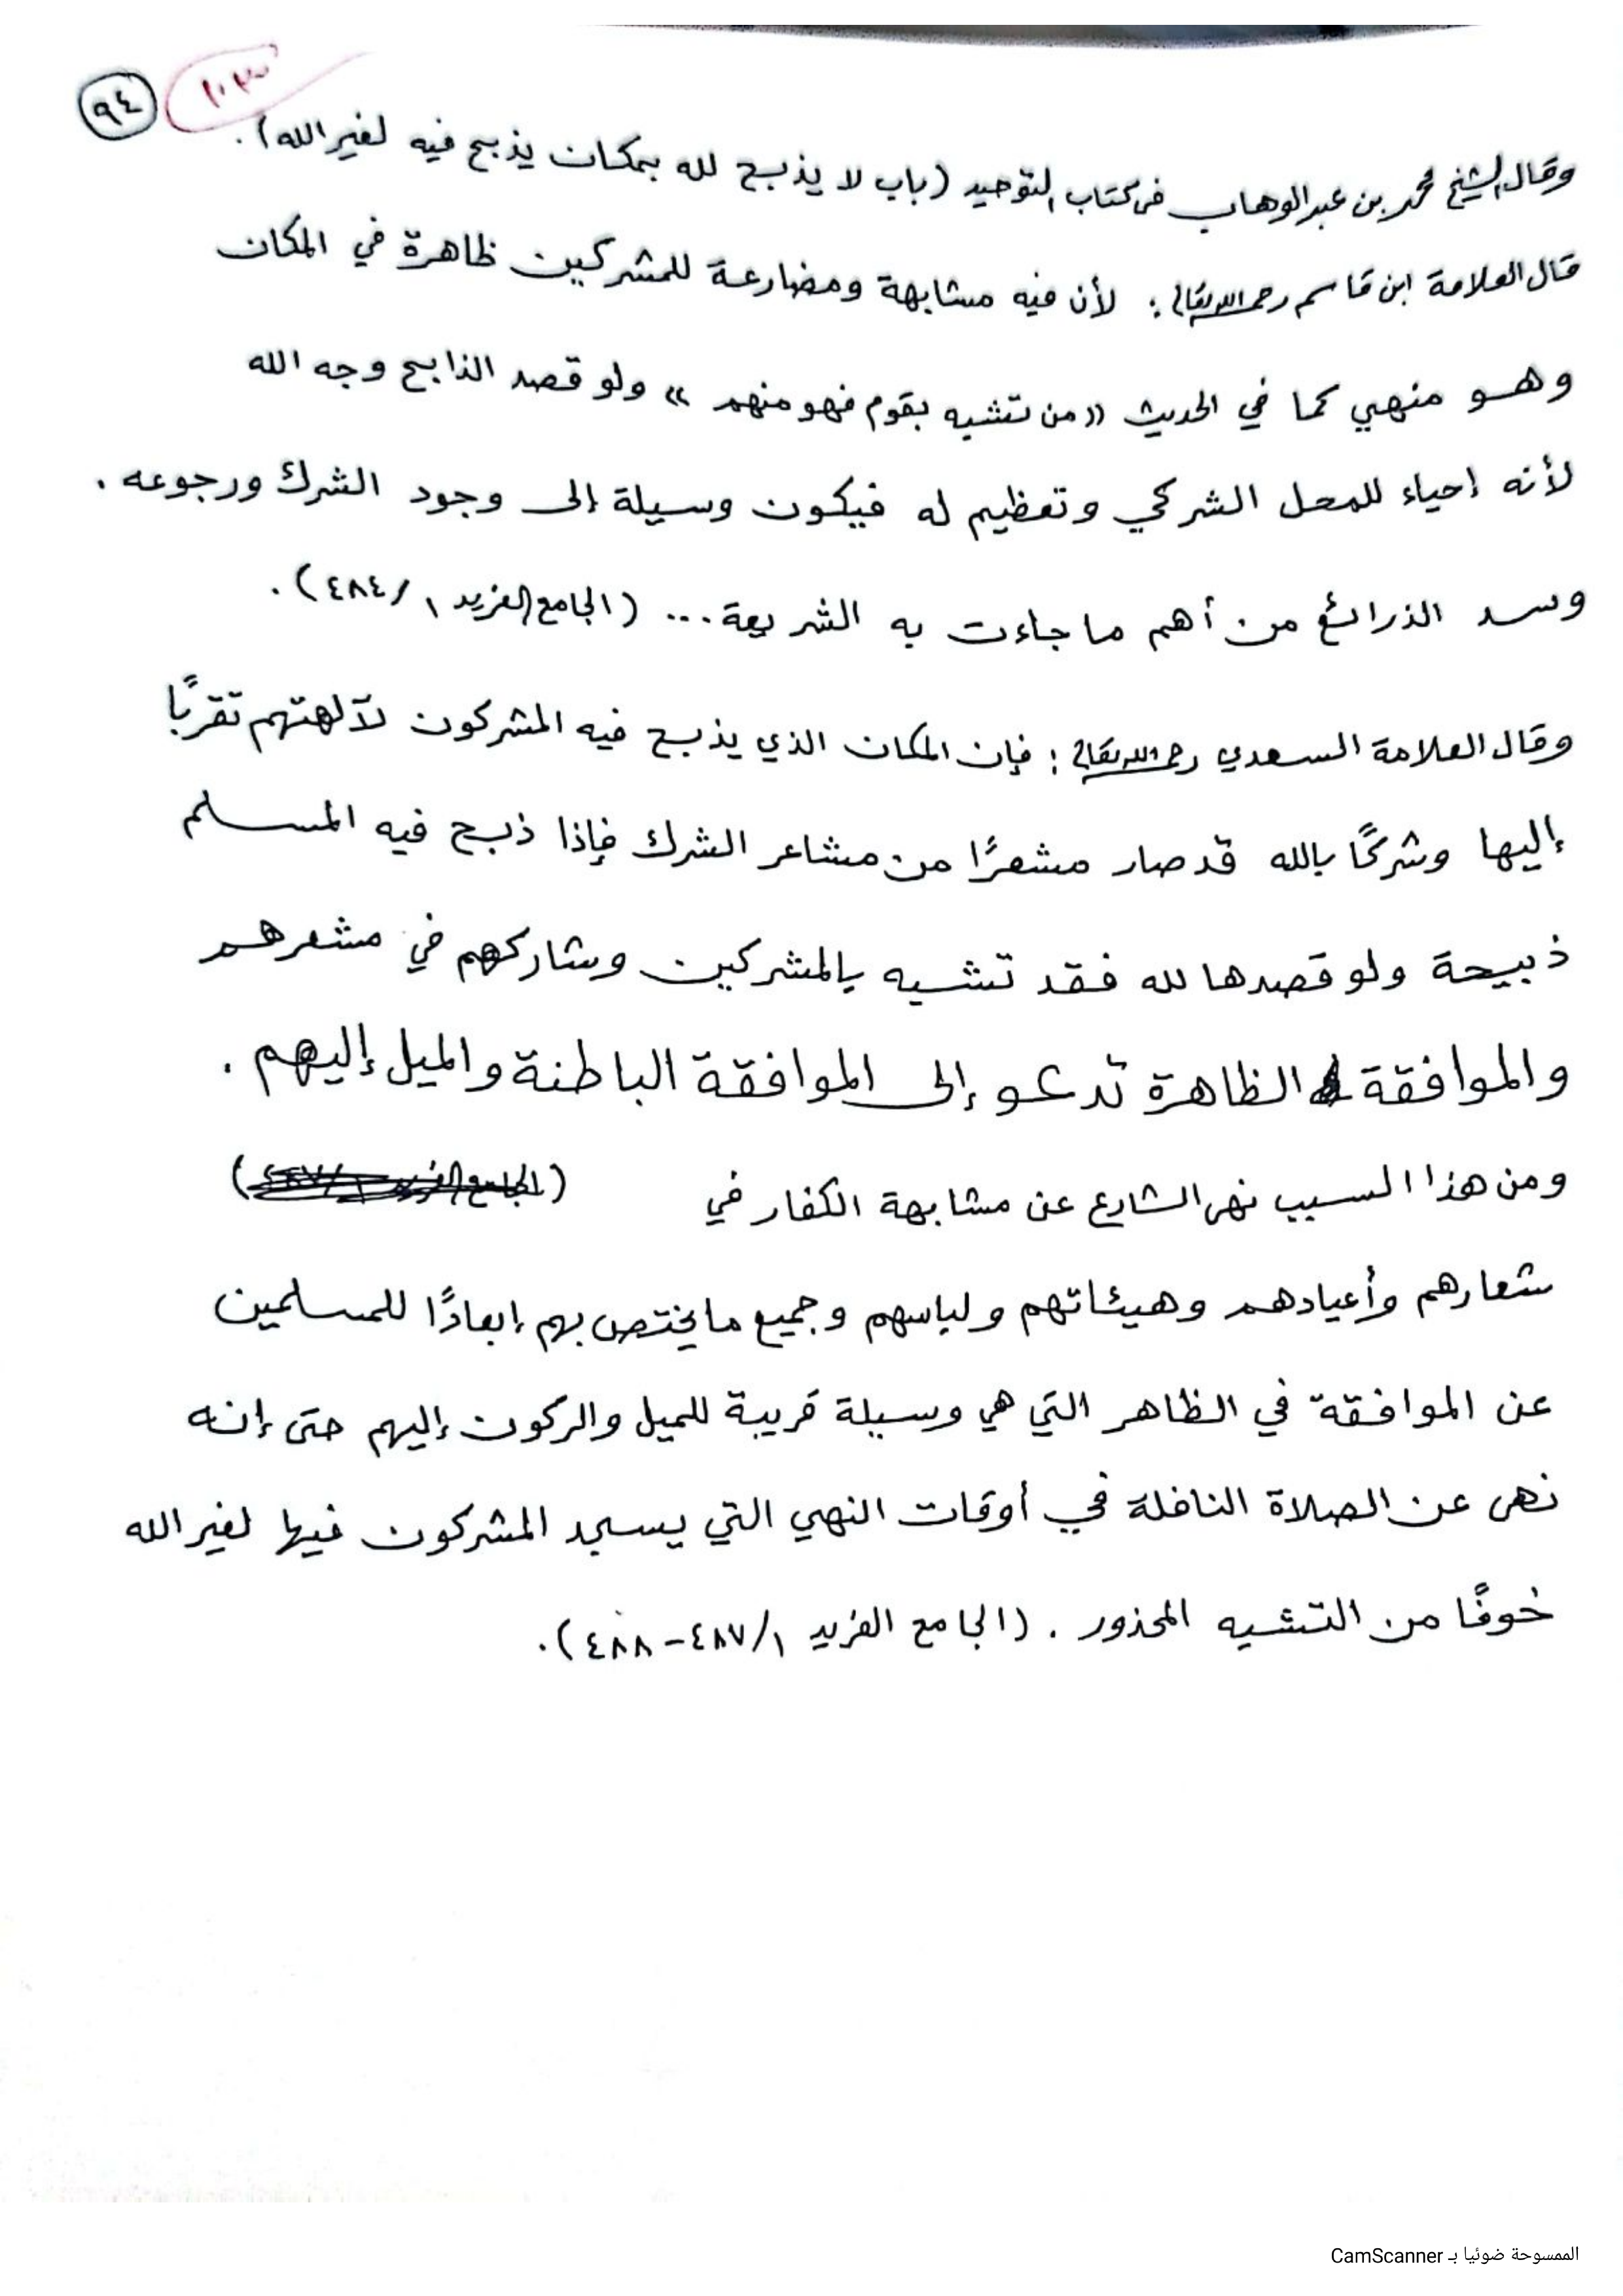 ٩٤
وقال الشيخ محمد بن عبدالوهاب في كتاب التوحيد (باب لا يذبح لله بمكان يذبح فيه لغير الله).
قال العلامة ابن قاسم رحمه الله تعالى: لأن فيه مشابهة ومضارعة للمشركين ظاهرة في المكان
وهو منهي كما في الحديث «من تشبه بقوم فهو منهم» ولو قصد الذابح وجه الله
لأنه إحياء للمحل الشركي وتعظيم له فيكون وسيلة إلى وجود الشرك ورجوعه.
وسد الذرائع من أهم ما جاءت به الشريعة... (الجامع الفريد ١/٤٨٤).
وقال العلامة السعدي رحمه الله تعالى: فإن المكان الذي يذبح فيه المشركون لآلهتهم تقربًا
إليها وشركًا بالله قد صار مشعرًا من مشاعر الشرك فإذا ذبح فيه المسلم
ذبيحة ولو قصدها لله فقد تشبه بالمشركين وشاركهم في مشعرهم
والموافقة الظاهرة تدعو إلى الموافقة الباطنة والميل إليهم.
ومن هذا السبب نهى الشارع عن مشابهة الكفار في
شعارهم وأعيادهم وهيئاتهم ولباسهم وجميع ما يختص بهم إبعادًا للمسلمين
عن الموافقة في الظاهر التي هي وسيلة قريبة للميل والركون إليهم حتى إنه
نهى عن الصلاة النافلة في أوقات النهي التي يسجد المشركون فيها لغير الله
خوفًا من التشبه المحذور. (الجامع الفريد ١/٤٨٧-٤٨٨).
الممسوحة ضوئيا بـ CamScanner